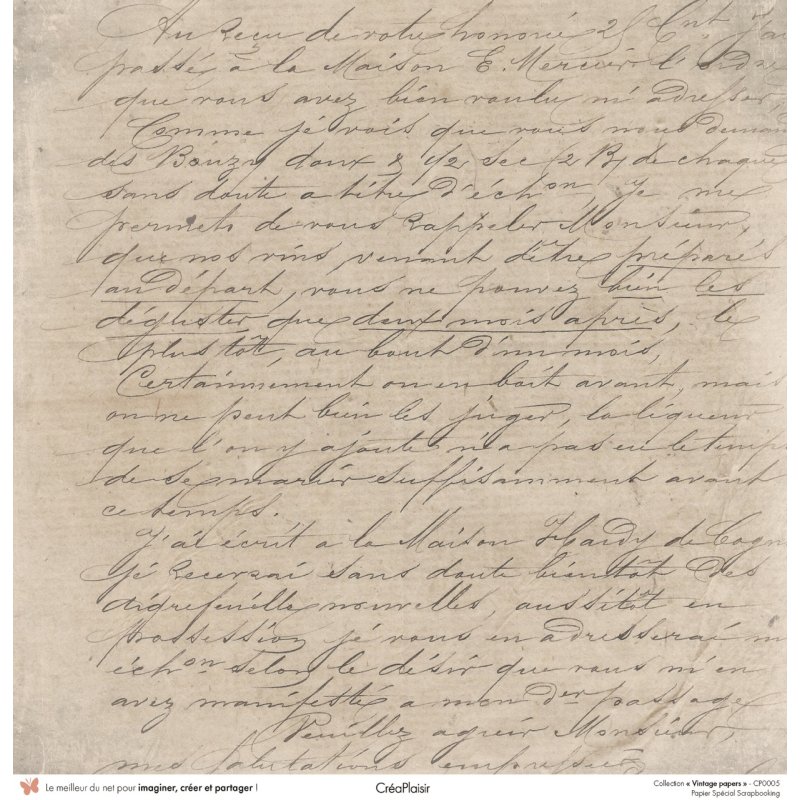 Au Reçu de votre honorée 25 Cnt, J'ai
passé à la Maison E. Mercier l'ordre
que vous avez bien voulu m'adresser,
Comme je vois que vous nous deman
des Bouzy doux & 1/2 sec 12 B/ de chaque
sans doute a titre d'échon, je me
permets de vous Rappeler Monsieur,
que nos vins, venant d'être préparés
au départ, vous ne pouvez bien les
déguster que deux mois après, le
plus tôt, au bout d'un mois,
Certainnement on en boit avant, mais
on ne peut bien les juger, la liqueur
que l'on y ajoute n'a pas eu le temps
de se marier suffisamment avant
ce temps.
J'ai écrit a la Maison Hardy de Cogn
je Recevrai sans doute bientôt des
aigrefeuille nouvelles, aussitôt en
possession je vous en adresserai
échon selon le désir que vous m'en
avez manifesté a mon der passage
Veuillez agréer Monsieur,
mes Salutations empressées
Le meilleur du net pour imaginer, créer et partager !
CréaPlaisir
Collection « Vintage papers » - CP0005
Papier Spécial Scrapbooking